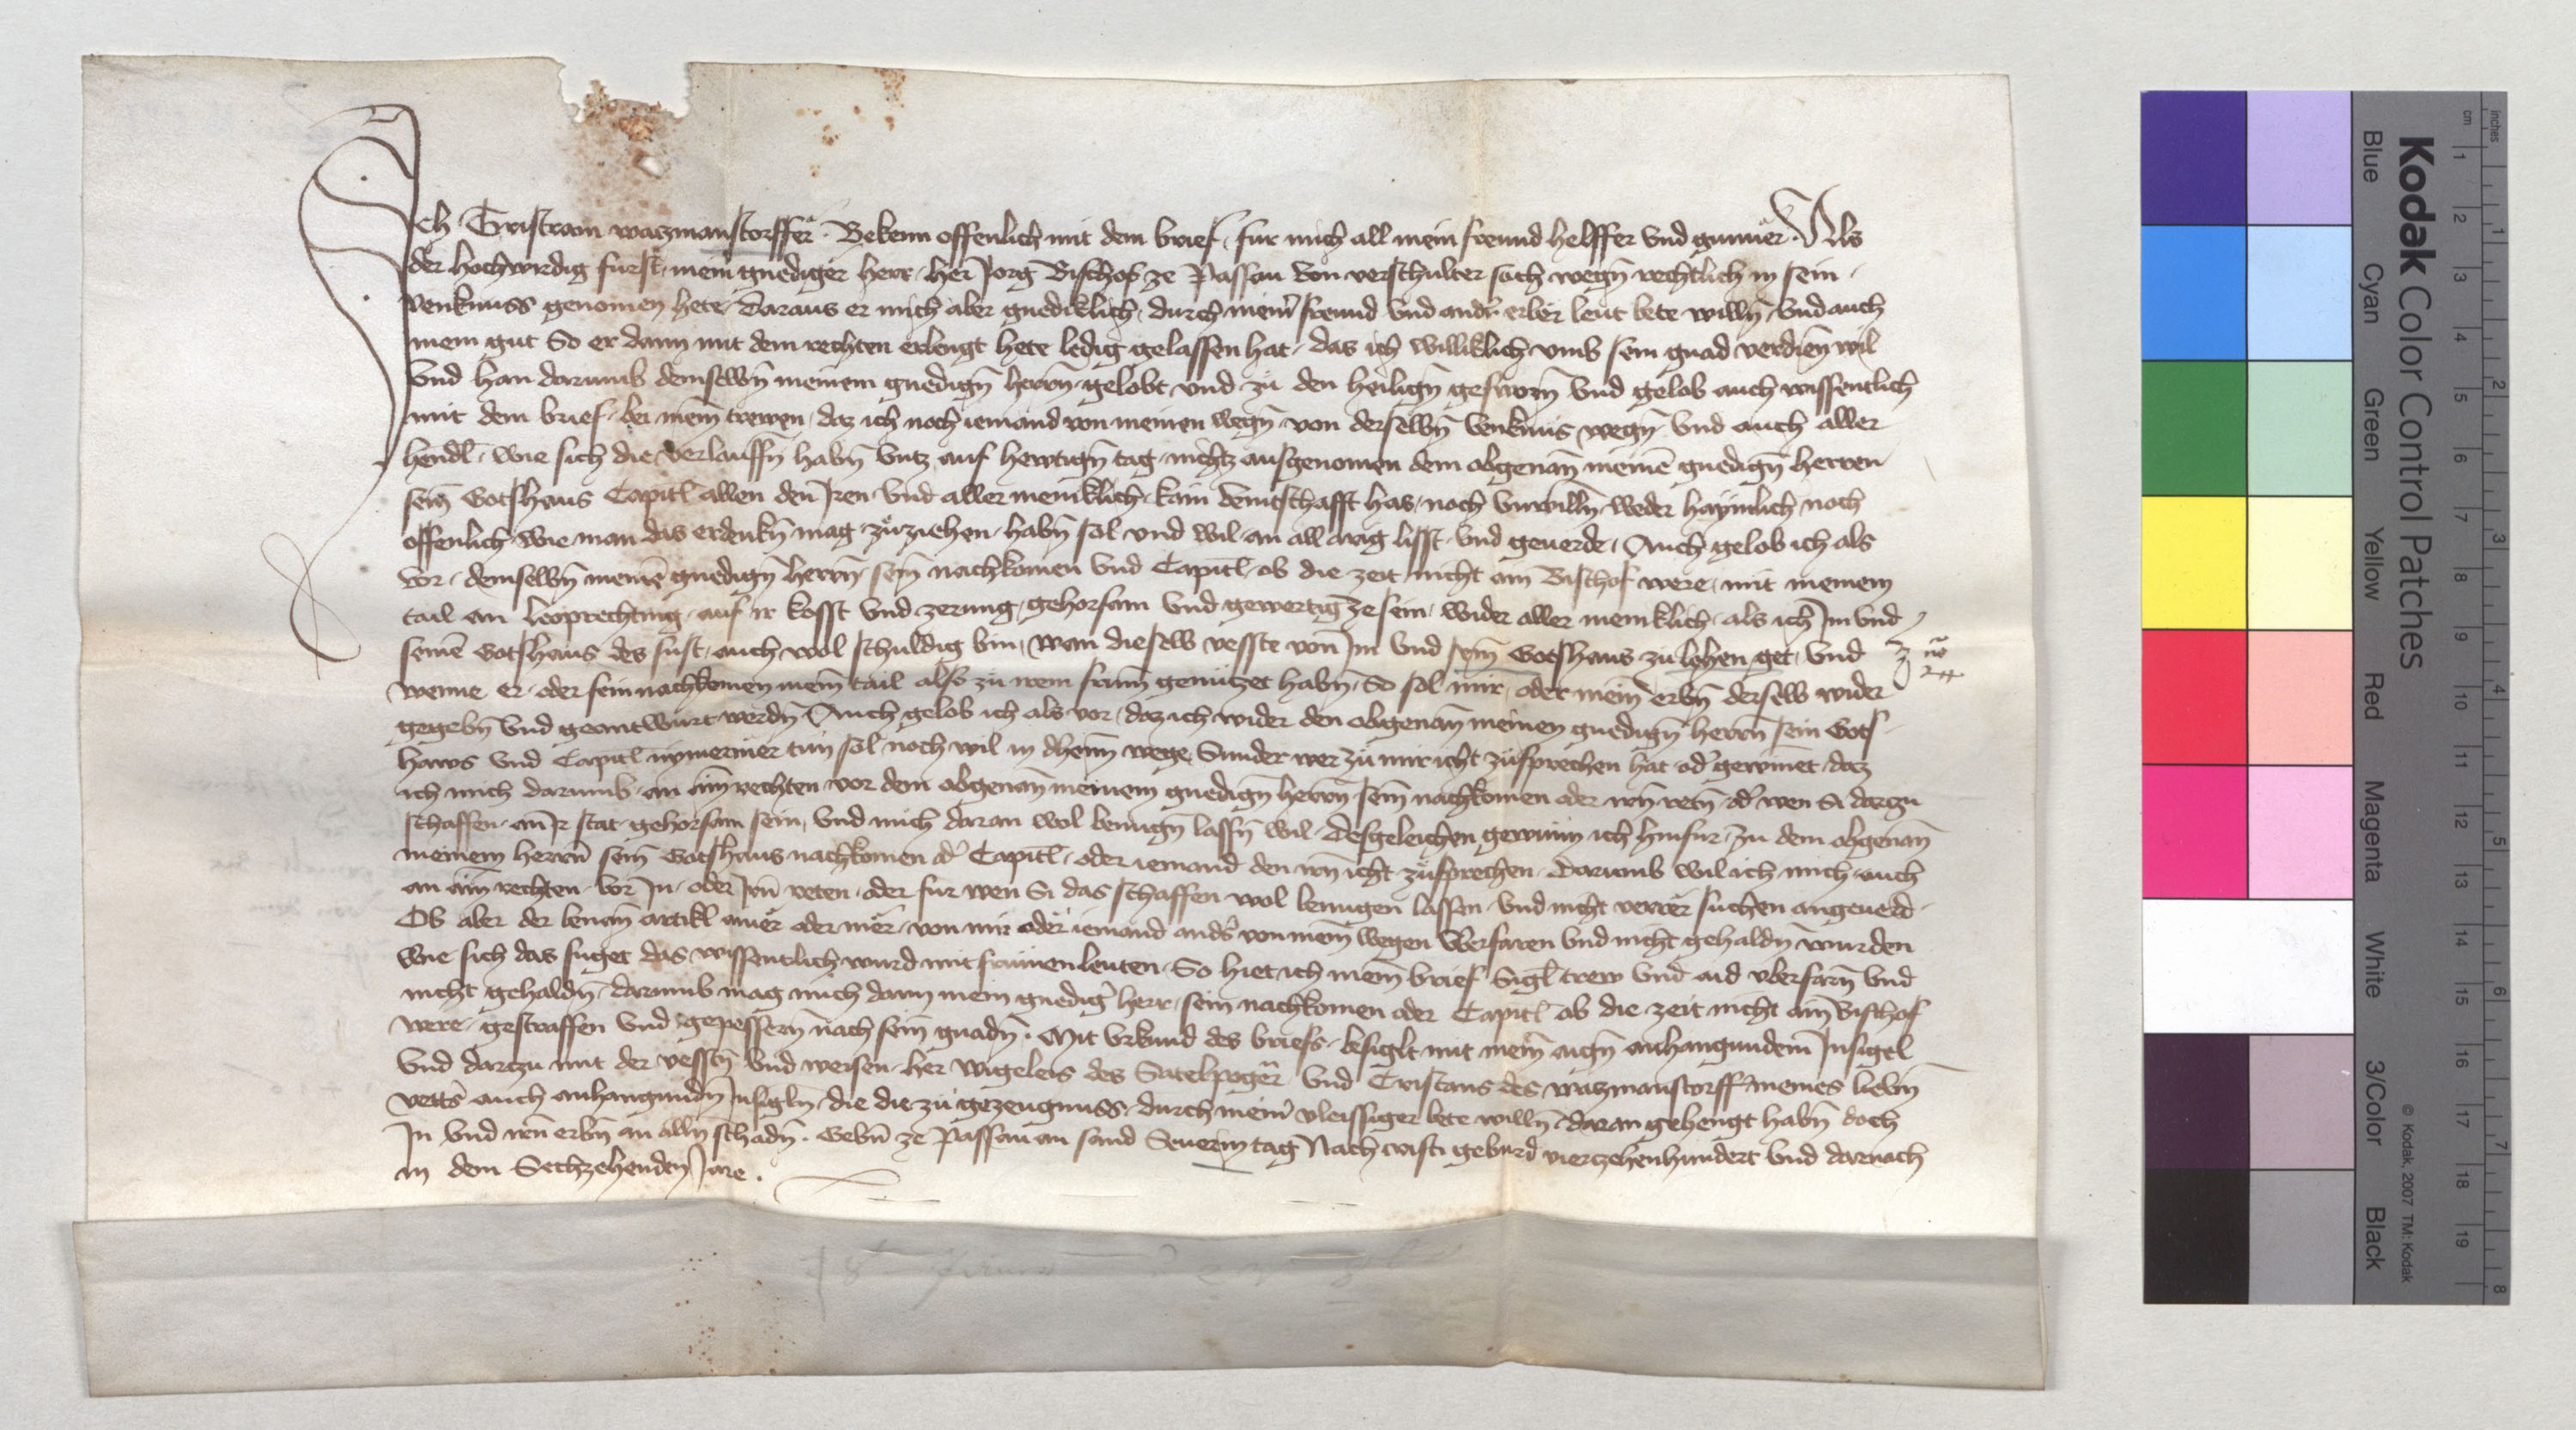 Ich Tristram watzmanstorffer · Bekenn offenlich mit dem brief / fur mich all mein freund helffer vnd gunner · Als
der hochwirdig furst / mein gnediger herr / her Jorg Bischof ze Passau von verschulter sach wegñ rechtlich in sein /
venknuss genomen hete / daraus er mich aber gnediklich / durch meinr̃ freund vnd andr̃ erber leut bete willñ / vnd auch
mein gut So er dann mit dem rechten erlengt hete ledig gelassen hat / das ich williklich vmb sein gnad verdien̄ wil
Vnd han darumb demselbñ meinem gnedigñ herrñ gelobt vnd zu den heiligñ gesworñ Vnd gelob auch wissentlich
mit dem brief / bei meiñ trewen / daz ich noch iemand von meinen wegñ von derselbñ venknus wegñ Vnd auch aller
hendl̃ / wie sich die verlauffñ habñ vntz auf hewtigñ tag / nichtz ausgenomen dem obgenañ meinē gnedigñ herren
seiñ Gotshaus Capitl̃ allen den Iren vnd aller meniklich / kain veintschafft has / noch vnwillñ weder haymlich noch
offenlich wie man das erdenkñ mag / zuziehen / habñ sol vnd wil / an all arig lisst / vnd geuerde / Auch gelob ich als
vor / demselbñ meinē gnedigñ herrñ / seiñ nachkomen vnd Capitl̃ / ob die zeit nicht ain Bischof were / mit meinem
tail an leoprechting / auf ir kosst vnd zerung / gehorsam vnd gewertig ze sein / wider aller meniklich / als ich Im vnd /
seinē Gotshaus des sust / auch wol schuldig bin / wan dieselb vesste von Im vnd seiñ Gotshaus zu lehen get / vnd
wenne er / oder sein nachkomen meiñ tail also zu irem frum̄ genutzet habñ / So sol mir / oder mein erbñ derselb wider
gegebñ vnd geantwurt werdñ Auch gelob ich als vor / daz ich wider den obgenañ meinen gnedigñ herrñ sein Gots /
haws vnd Capitl nymermer tun sol noch wil in dheiñ wege / Sunder wer zu mir icht zusprechen hat / odr̃ gewinnet / daz
ich mich darumb / an aiñ rechten / vor dem obgenañ meinem gnedigñ herrñ seiñ nachkomen oder irñ retñ / odr̃ wen Si darzu
schaffen / an Ir stat / gehorsam sein / vnd mich daran wol benugñ lassñ wil / Desgeleichen gewunn ich hinfur / zu dem obgenañ
meinem herrñ seiñ Gotshaus nachkomen odr̃ Capitl̃ / oder iemand den irñ icht / zusprechen / darumb wil ich mich / auch
an aiñ rechten / vor In / oder Irñ reten / oder fur wen Si das schaffen wol benugen lassen / vnd nicht verrer suchen angeuerd /
Ob aber der benañ artikl ainer oder mer / von mir oder iemand andr̃s von meiñ wegen vberfaren vnd nicht gehaldñ wurden
wie sich das fuget das wissentlich wurd mit frumen leuten / So hiet ich mein brief Sigl̃ trew vnd aid vberfarñ vnd
nicht gehaldñ / darumb mag mich dann mein gnedigr̃ herr / sein nachkomen oder Capitl̃ ob die zeit nicht ain Bischof
were / gestraffen vnd gepessern nach seiñ gnadñ · Mit vrkund des briefs / besiglt mit meiñ aigñ anhangundem Insigel
Vnd darczu mit der vesstñ vnd weisen / her wigeleis des Satelpoger Vnd Tristans des watzmanstorffer meines liebñ
vettr̃s auch anhangundñ Insiglñ / die die zu gezeugnuss / durch meinr̃ vleissiger bete willñ / daran gehengt habñ doch
In vnd irñ erbñ an allñ schadñ · Gebñ ze Passau an sand Seuerin tag Nach cristi geburd vierczehenhundert vnd darnach
in dem Sechzehenden Jare ·